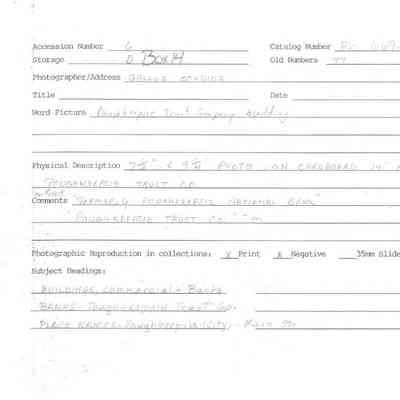 Accession Number 6 Catalog Number
Storage 0 Box 14 Old Numbers 77
Photographer/Address Gallup Studios
Title Date
Word Picture Poughkeepsie Trust Company building
Physical Description 7½" x 9½ PHOTO ON CARDBOARD 14
POUGHKEEPSIE TRUST CO.
Comments "FORMERLY POUGHKEEPSIE NATIONAL BANK"
"POUGHKEEPSIE TRUST CO."
Photographic Reproduction in collections: x Print x Negative 35mm Slide
Subject Headings:
BUILDINGS, Commercial + Banks
BANKS - Poughkeepsie Trust Co.
PLACE NAMES - Poughkeepsie (City) - Main St.